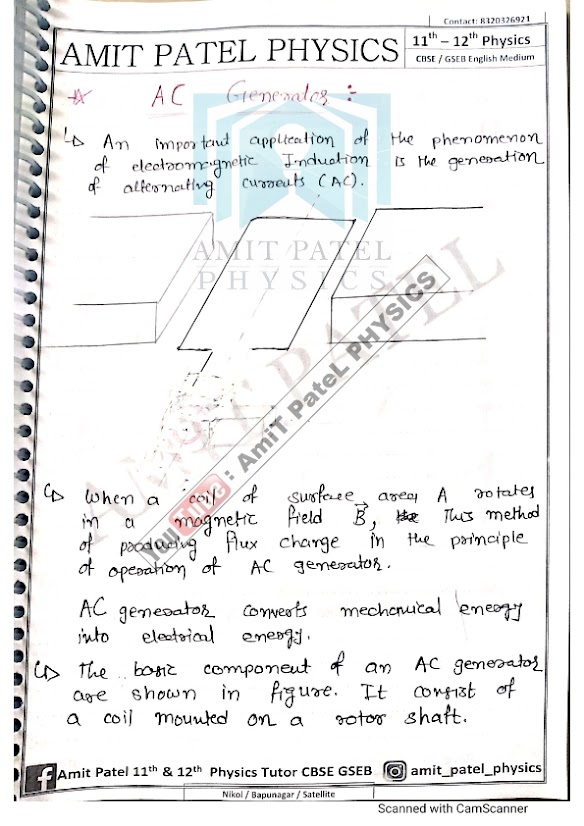 Contact: 8320326921
AMIT PATEL PHYSICS
11th – 12th Physics
CBSE / GSEB English Medium
AC Generator :-
An important application of the phenomenon
of electromagnetic Induction is the generation
of alternating currents (AC).
AMIT PATEL
PHYSICS
AMIT PATEL
YouTube : AmiT PateL PHYSICS
When a coil of surface area A rotates
in a magnetic field B, This method
of producing flux change in the principle
of operation of AC generator.
AC generator converts mechanical energy
into electrical energy.
The basic component of an AC generator
are shown in figure. It consist of
a coil mounted on a rotor shaft.
f Amit Patel 11th & 12th Physics Tutor CBSE GSEB amit_patel_physics
Nikol / Bapunagar / Satellite
Scanned with CamScanner